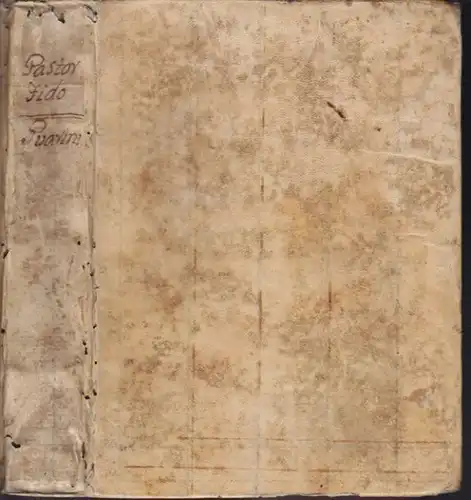 Pastor
Fido
Guarini